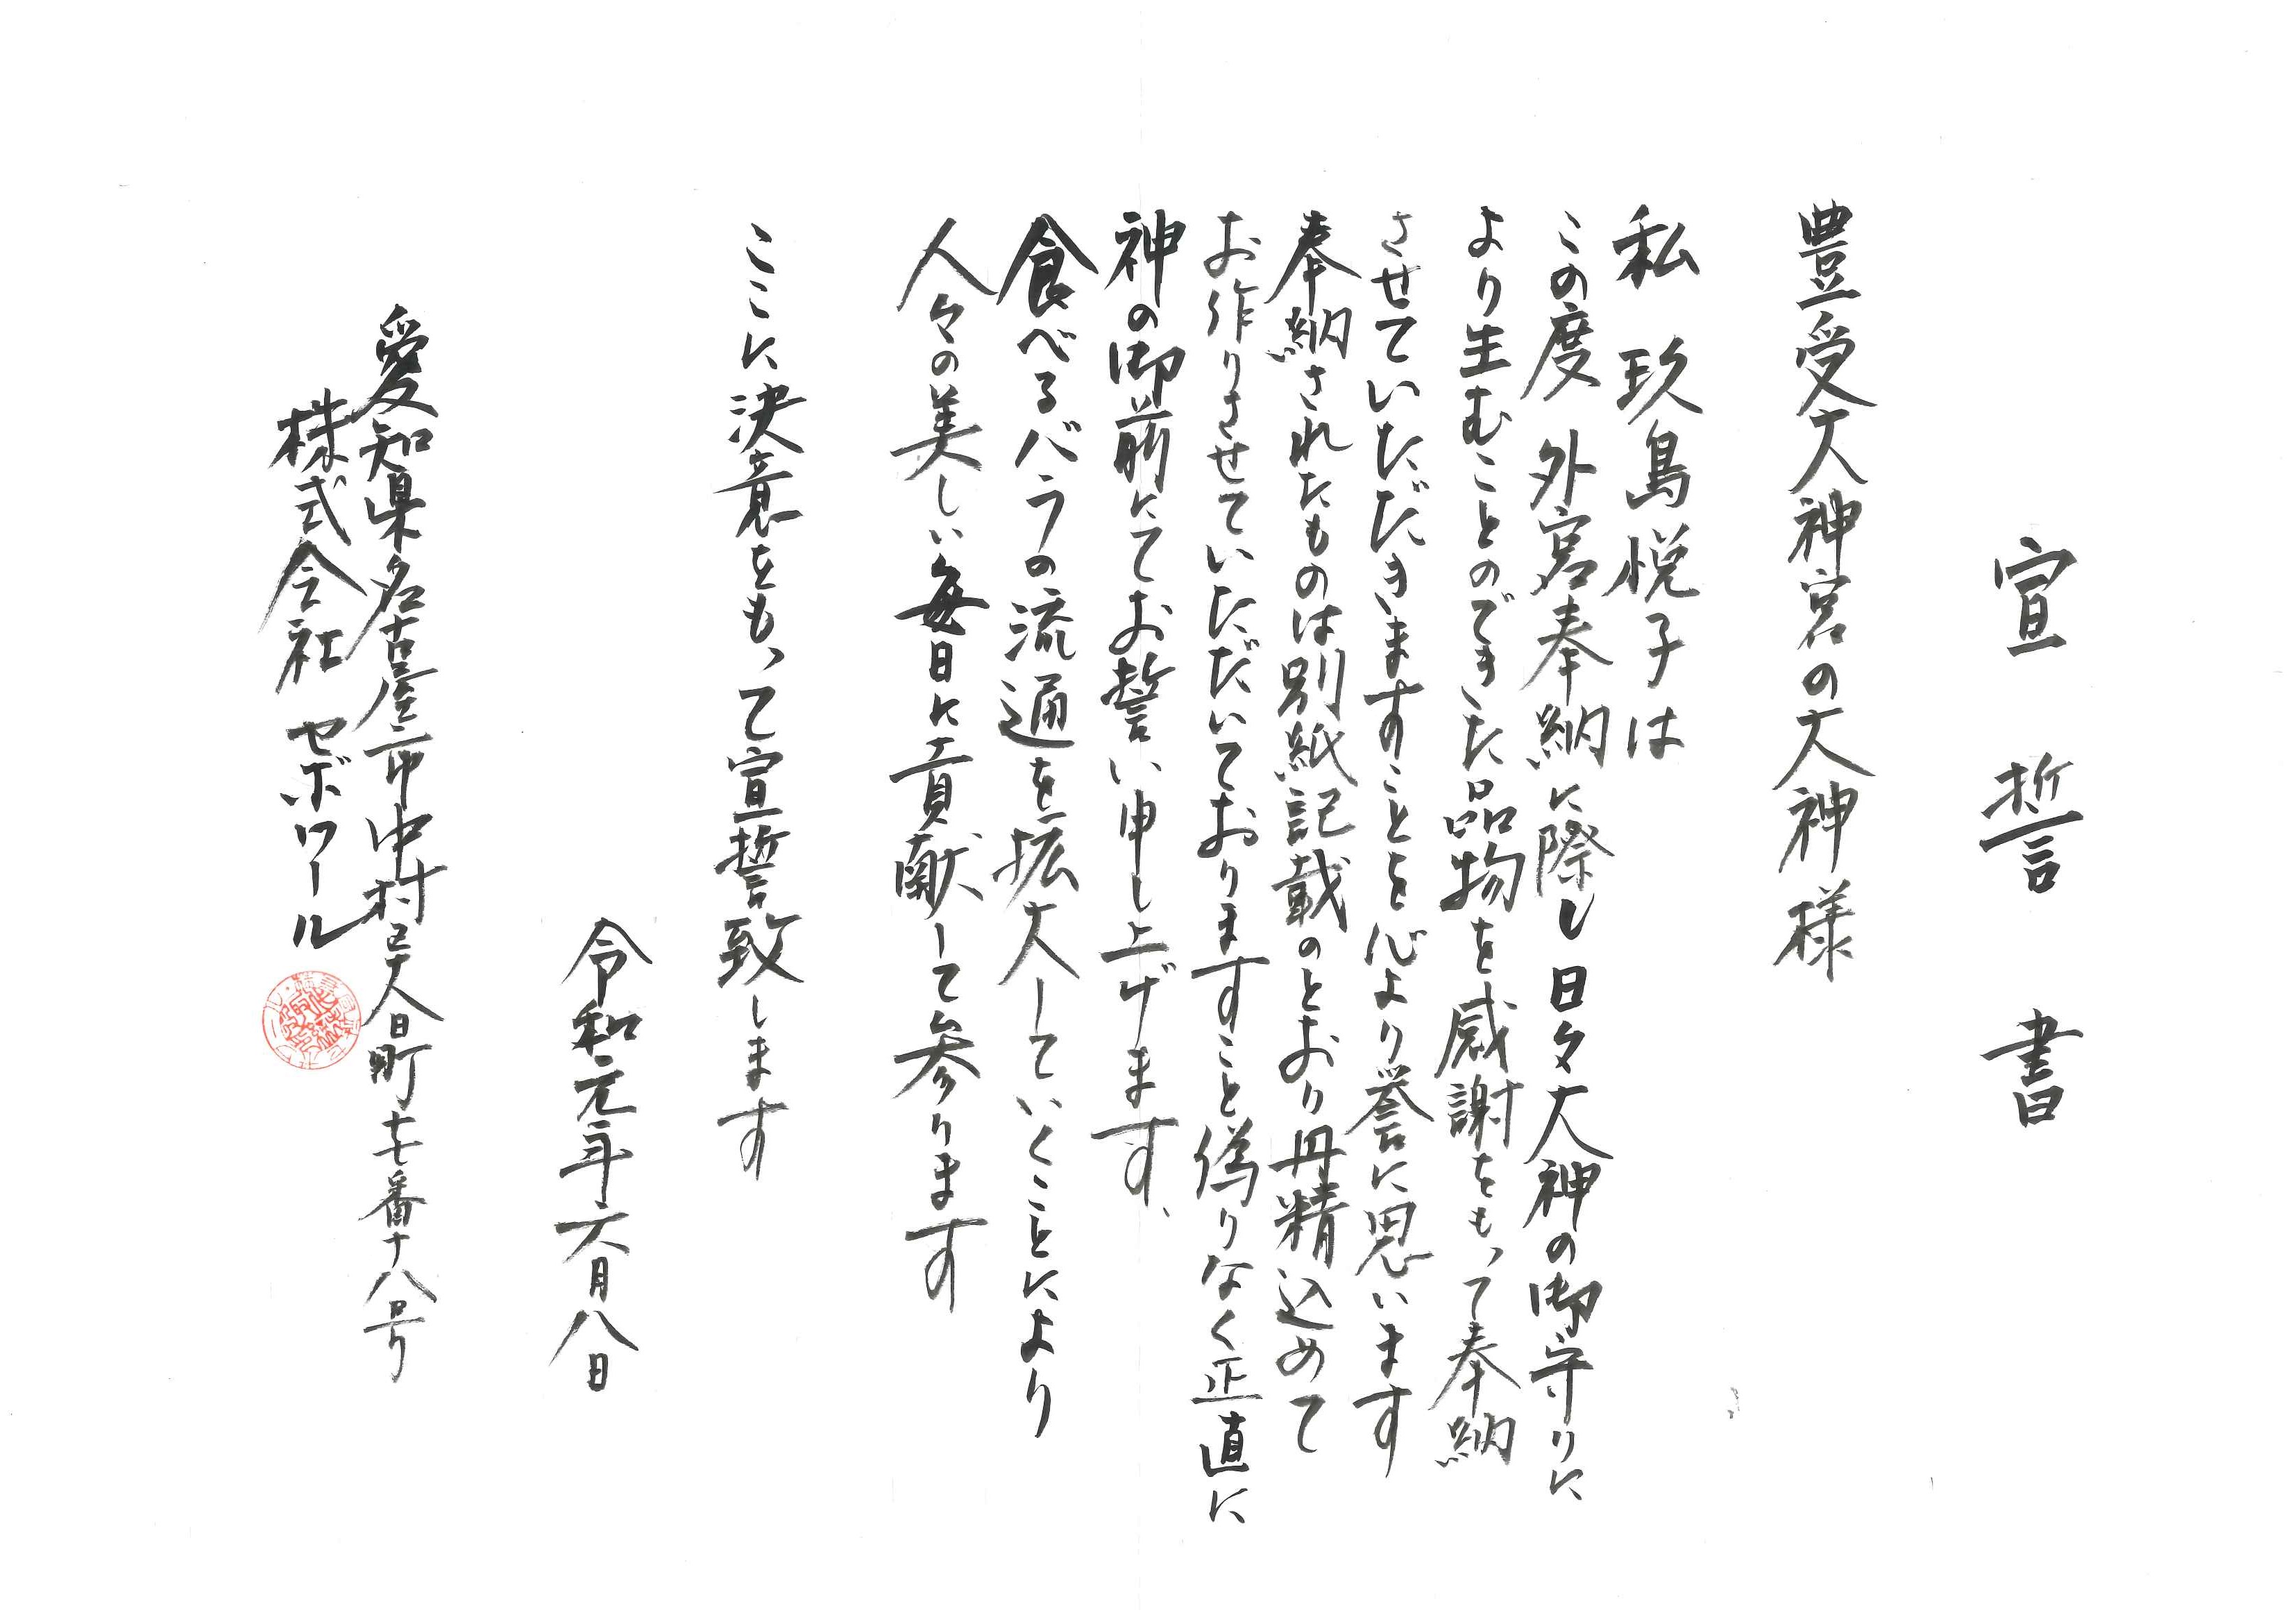 宣誓書
豊受大神宮の大神様
私 玖島悦子は
この度 外宮奉納に際し日々大神の御守りに
より生むことのできた品物を感謝をもって奉納
させていただきますことを心より誉に思います
奉納されたものは別紙記載のとおり丹精込めて
お作りさせていただいておりますこと偽りなく正直に
神の御前にてお誓い申し上げます、
食べるバラの流通を拡大していくことにより
人々の美しい毎日に貢献して参ります
ここに決意をもって宣誓致します
令和元年六月八日
愛知県名古屋市中村区大日町七番十八号
株式会社 セボワール